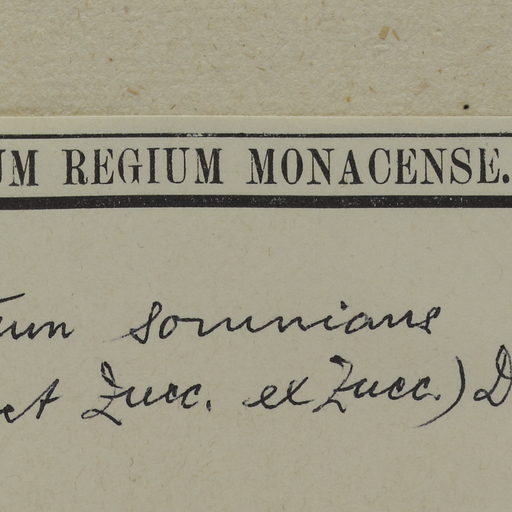 UM REGIUM MONACENSE.
um somnians
et Zucc. ex Zucc.) D